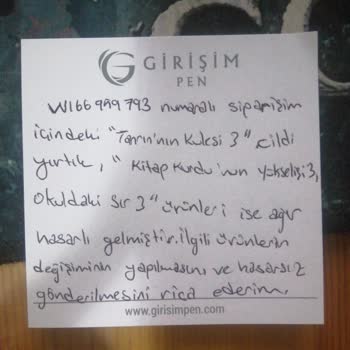 GİRİŞİM
PEN
W166999793 numaralı siparişim
içindeki "Tanrı'nın Kulesi 3" cildi
yırtık, "Kitap Kurdu'nun Yükselişi 3,
Okuldaki Sır 3" ürünleri ise ağır
hasarlı gelmiştir. İlgili ürünlerin
değişiminin yapılmasını ve hasarsız
gönderilmesini rica ederim.
www.girisimpen.com